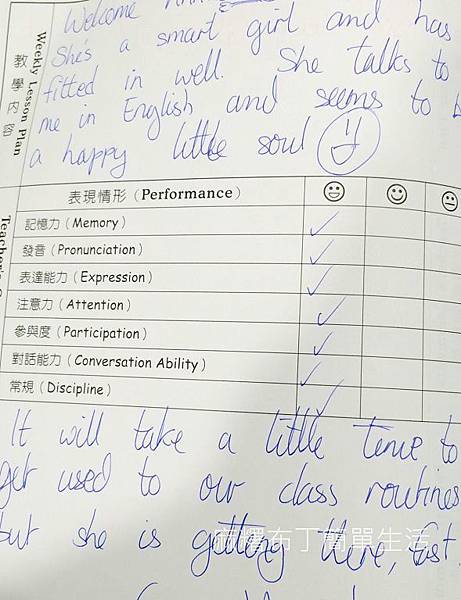 Welcome
She's a smart girl and has
fitted in well. She talks to
me in English and seems to b
a happy little soul
Weekly Lesson Plan
教學內容
表現情形 (Performance)
Teacher's
記憶力 (Memory)
發音 (Pronunciation)
表達能力 (Expression)
注意力 (Attention)
參與度 (Participation)
對話能力 (Conversation Ability)
常規 (Discipline)
It will take a little time to
get used to our class routines
but she is getting there, fast.
布丁簡單生活